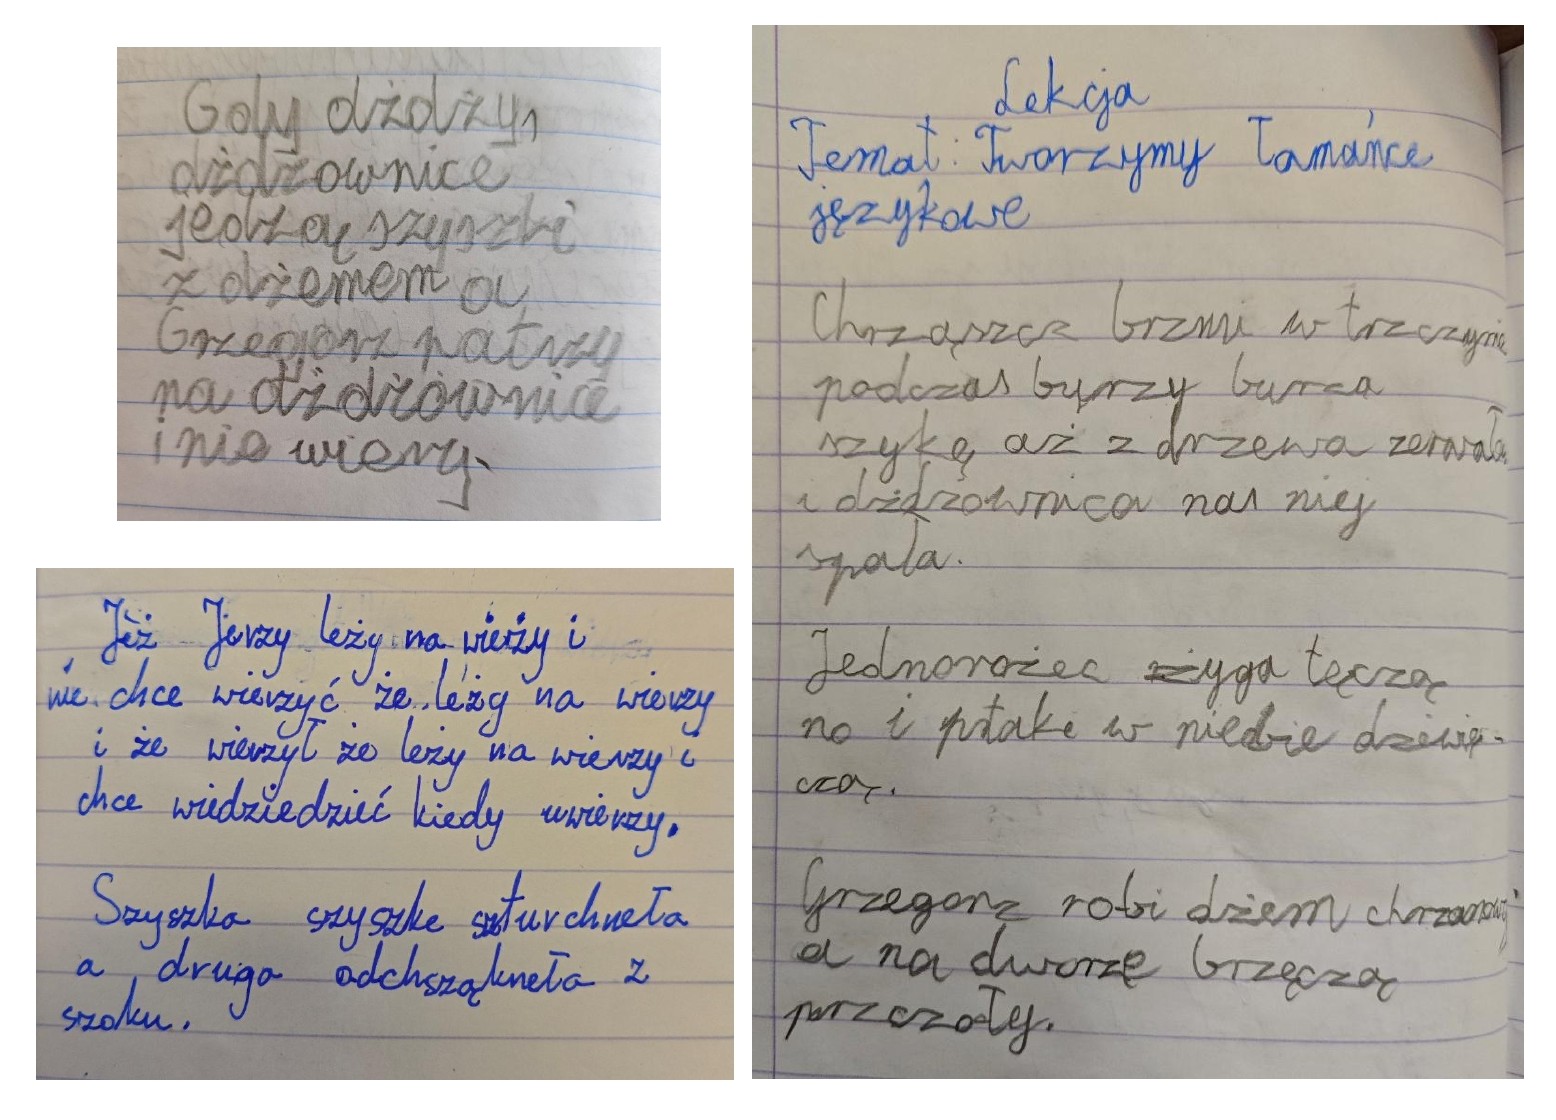 Gdy dżdży,
dżdżownice
jedzą szyszki
z dżemem a
Grzegorz patrzy
na dżdżownice
i nie wierzy.
Jeż Jerzy leży na wieży i
nie chce wierzyć że leży na wierzy
i że wierzył że leży na wierzy i
chce wiedziedzieć kiedy uwierzy.
Szyszka szyszke szturchneła
a druga odchsząkneła z
szoku.
Lekcja
Temat: Tworzymy łamańce
językowe
Chrząszcz brzmi w trzczynie
podczas byrzy burza
szykę aż z drzewa zerwała
i dżdżownica nas niej
spała.
Jednorożec żyga tęczą
no i ptaki w niebie dziewię-
czą.
Grzegorz robi dżem chrzanowy
a na dworzę brzęczą
przczoły.